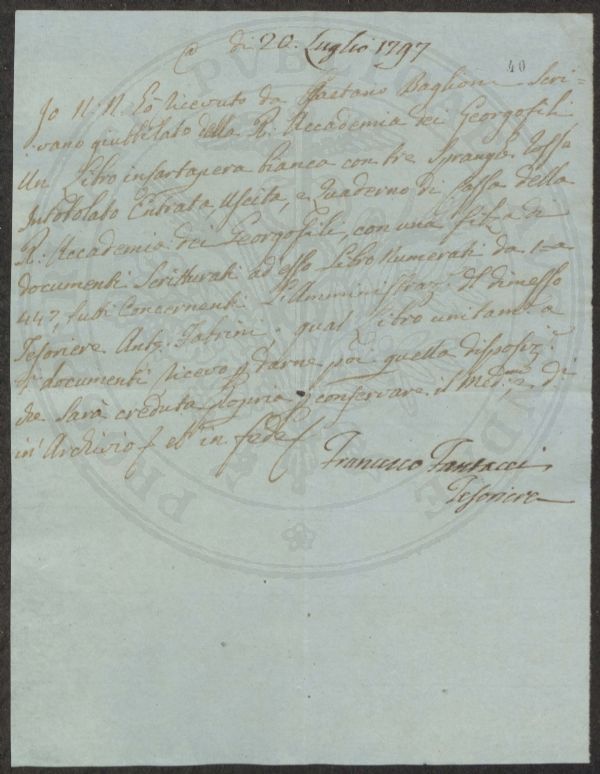 @ di 20. Luglio 1797
40
Jo N. N. Hò ricevuto da Gaetano Baglioni Scri=
=vano giubbilato della R. Accademia dei Georgofili
Un Libro in cartapecora bianca con tre Spranghe rosse
Intitolato Entrata, Uscita, e Quaderno di Cassa della
R. Accademia dei Georgofili, con una filza di
documenti Scritturali ad esso Libro Numerati da 1 a
447, tutti Concernenti L'Amministraz:e del dimesso
Tesoriere Ant:o Fabrini, qual Libro unitam:e a
d.i documenti ricevo p darne poi quella disposiz:e
che sarà creduta propria p conservare il Med:mo di
in Archivio e in fede
Francesco Fantacci
Tesoriere
PVBLICAE
PROSPERITATI